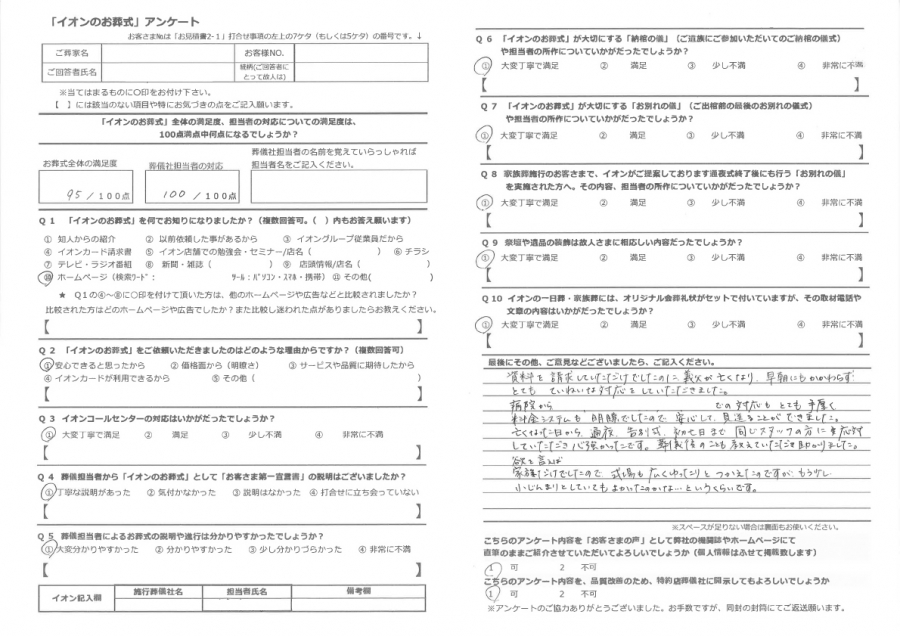 「イオンのお葬式」アンケート
お客さま№は「お見積書2-1」打合せ事項の左上の7ケタ（もしくは5ケタ）の番号です。↓
ご葬家名 お客様NO.
ご回答者氏名 続柄(ご回答者にとって故人は)
※当てはまるものに○印をお付け下さい。
【　】には該当のない項目や特にお気づきの点をご記入願います。
「イオンのお葬式」全体の満足度、担当者の対応についての満足度は、
100点満点中何点になるでしょうか？
お葬式全体の満足度 葬儀社担当者の対応 葬儀社担当者の名前を覚えていらっしゃれば
担当者名をご記入ください。
95 / 100点 100 / 100点
Q 1　「イオンのお葬式」を何でお知りになりましたか？（複数回答可。（　）内もお答え願います）
① 知人からの紹介 ② 以前依頼した事があるから ③ イオングループ従業員だから
④ イオンカード請求書 ⑤ イオン店舗での勉強会・セミナー/店名（　） ⑥ チラシ
⑦ テレビ・ラジオ番組 ⑧ 新聞・雑誌（　） ⑨ 店頭情報/店名（　）
⑩ ホームページ（検索ﾜｰﾄﾞ：　ﾂｰﾙ：ﾊﾟｿｺﾝ・ｽﾏﾎ・携帯）⑪ その他(　)
★　Q１の④～⑩に○印を付けて頂いた方は、他のホームページや広告などと比較されましたか？
比較された方はどのホームページや広告でしたか？また比較し迷われた点がありましたらお教えください。
【　】
Q 2　「イオンのお葬式」をご依頼いただきましたのはどのような理由からですか？（複数回答可）
① 安心できると思ったから ② 価格面から（明瞭さ） ③ サービスや品質に期待したから
④ イオンカードが利用できるから ⑤ その他（　）
【　】
Q 3　イオンコールセンターの対応はいかがだったでしょうか？
① 大変丁寧で満足 ② 満足 ③ 少し不満 ④ 非常に不満
【　】
Q 4　葬儀担当者から「イオンのお葬式」として「お客さま第一宣言書」の説明はございましたか？
① 丁寧な説明があった ② 気付かなかった ③ 説明はなかった ④ 打合せに立ち会っていない
【　】
Q 5　葬儀担当者によるお葬式の説明や進行は分かりやすかったでしょうか？
① 大変分かりやすかった ② 分かりやすかった ③ 少し分かりづらかった ④ 非常に不満
【　】
イオン記入欄 施行葬儀社名 担当者氏名 備考欄
Q 6　「イオンのお葬式」が大切にする「納棺の儀」（ご遺族にご参加いただいてのご納棺の儀式）
や担当者の所作についていかがだったでしょうか？
① 大変丁寧で満足 ② 満足 ③ 少し不満 ④ 非常に不満
【　】
Q 7　「イオンのお葬式」が大切にする「お別れの儀」（ご出棺前の最後のお別れの儀式）
や担当者の所作についていかがだったでしょうか？
① 大変丁寧で満足 ② 満足 ③ 少し不満 ④ 非常に不満
【　】
Q 8　家族葬施行のお客さまで、イオンがご提案しております通夜式終了後にも行う「お別れの儀」
を実施された方へ。その内容、担当者の所作についていかがだったでしょうか？
① 大変丁寧で満足 ② 満足 ③ 少し不満 ④ 非常に不満
【　】
Q 9　祭壇や遺品の装飾は故人さまに相応しい内容だったでしょうか？
① 大変丁寧で満足 ② 満足 ③ 少し不満 ④ 非常に不満
【　】
Q 10　イオンの一日葬・家族葬には、オリジナル会葬礼状がセットで付いていますが、その取材電話や
文章の内容はいかがだったでしょうか？
① 大変丁寧で満足 ② 満足 ③ 少し不満 ④ 非常に不満
【　】
最後にその他、ご意見などございましたら、ご記入ください。
資料を請求していただけでしたのに義父が亡くなり、早朝にもかかわらず
とても ていねいな対応をしていただきました。
病院から　での対応も とても 手厚く
料金システムも 明瞭でしたので 安心して 見送ることができました。
亡くなった日から、通夜、告別式、初七日まで 同じスタッフの方に 対応
していただき 心強かったです。 葬儀後のことも教えていただき助かりました。
欲を言えば
家族だけでしたので 式場も 広くゆったりと つかえたのですが、もう少し
小じんまりとしていても よかったのかな…というくらいです。
※スペースが足りない場合は裏面もお使いください。
こちらのアンケート内容を「お客さまの声」として弊社の機関誌やホームページにて
直筆のままご紹介させていただいてよろしいでしょうか（個人情報はふせて掲載致します）
1　可　2　不可
こちらのアンケート内容を、品質改善のため、特約店葬儀社に開示してもよろしいでしょうか
1　可　2　不可
※アンケートのご協力ありがとうございました。お手数ですが、同封の封筒にてご返送願います。